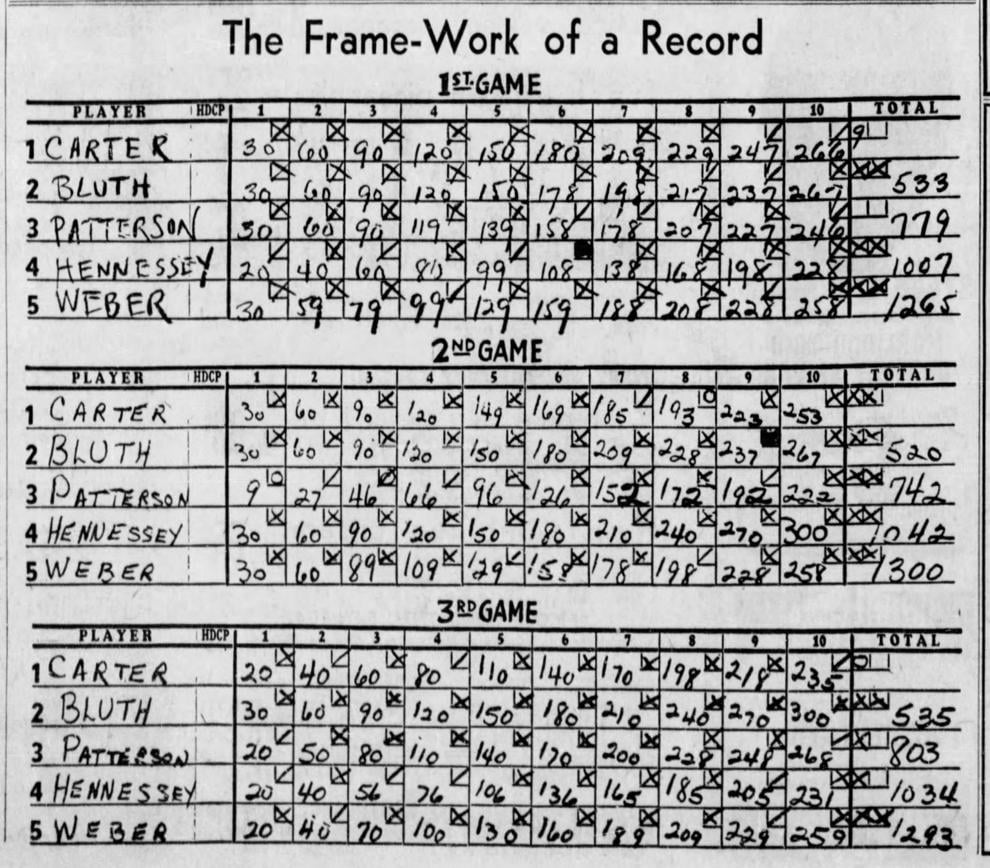 The Frame-Work of a Record
1ST. GAME
PLAYER HDCP 1 2 3 4 5 6 7 8 9 10 TOTAL
1 CARTER 30 60 90 120 150 180 209 229 247 266 9
2 BLUTH 30 60 90 120 150 178 198 217 237 267 533
3 PATTERSON 30 60 90 119 139 158 178 207 227 246 779
4 HENNESSEY 20 40 60 80 99 108 138 168 198 228 1007
5 WEBER 30 59 79 99 129 159 188 208 228 258 1265
2ND GAME
PLAYER HDCP 1 2 3 4 5 6 7 8 9 10 TOTAL
1 CARTER 30 60 90 120 149 169 185 193 223 253
2 BLUTH 30 60 90 120 150 180 209 228 237 267 520
3 PATTERSON 9 27 46 66 96 126 152 172 192 222 742
4 HENNESSEY 30 60 90 120 150 180 210 240 270 300 1042
5 WEBER 30 60 89 109 129 158 178 198 228 258 1300
3RD GAME
PLAYER HDCP 1 2 3 4 5 6 7 8 9 10 TOTAL
1 CARTER 20 40 60 80 110 140 170 198 218 235
2 BLUTH 30 60 90 120 150 180 210 240 270 300 535
3 PATTERSON 20 50 80 110 140 170 200 228 248 268 803
4 HENNESSEY 20 40 56 76 106 136 165 185 205 231 1034
5 WEBER 20 40 70 100 130 160 189 209 229 259 1293